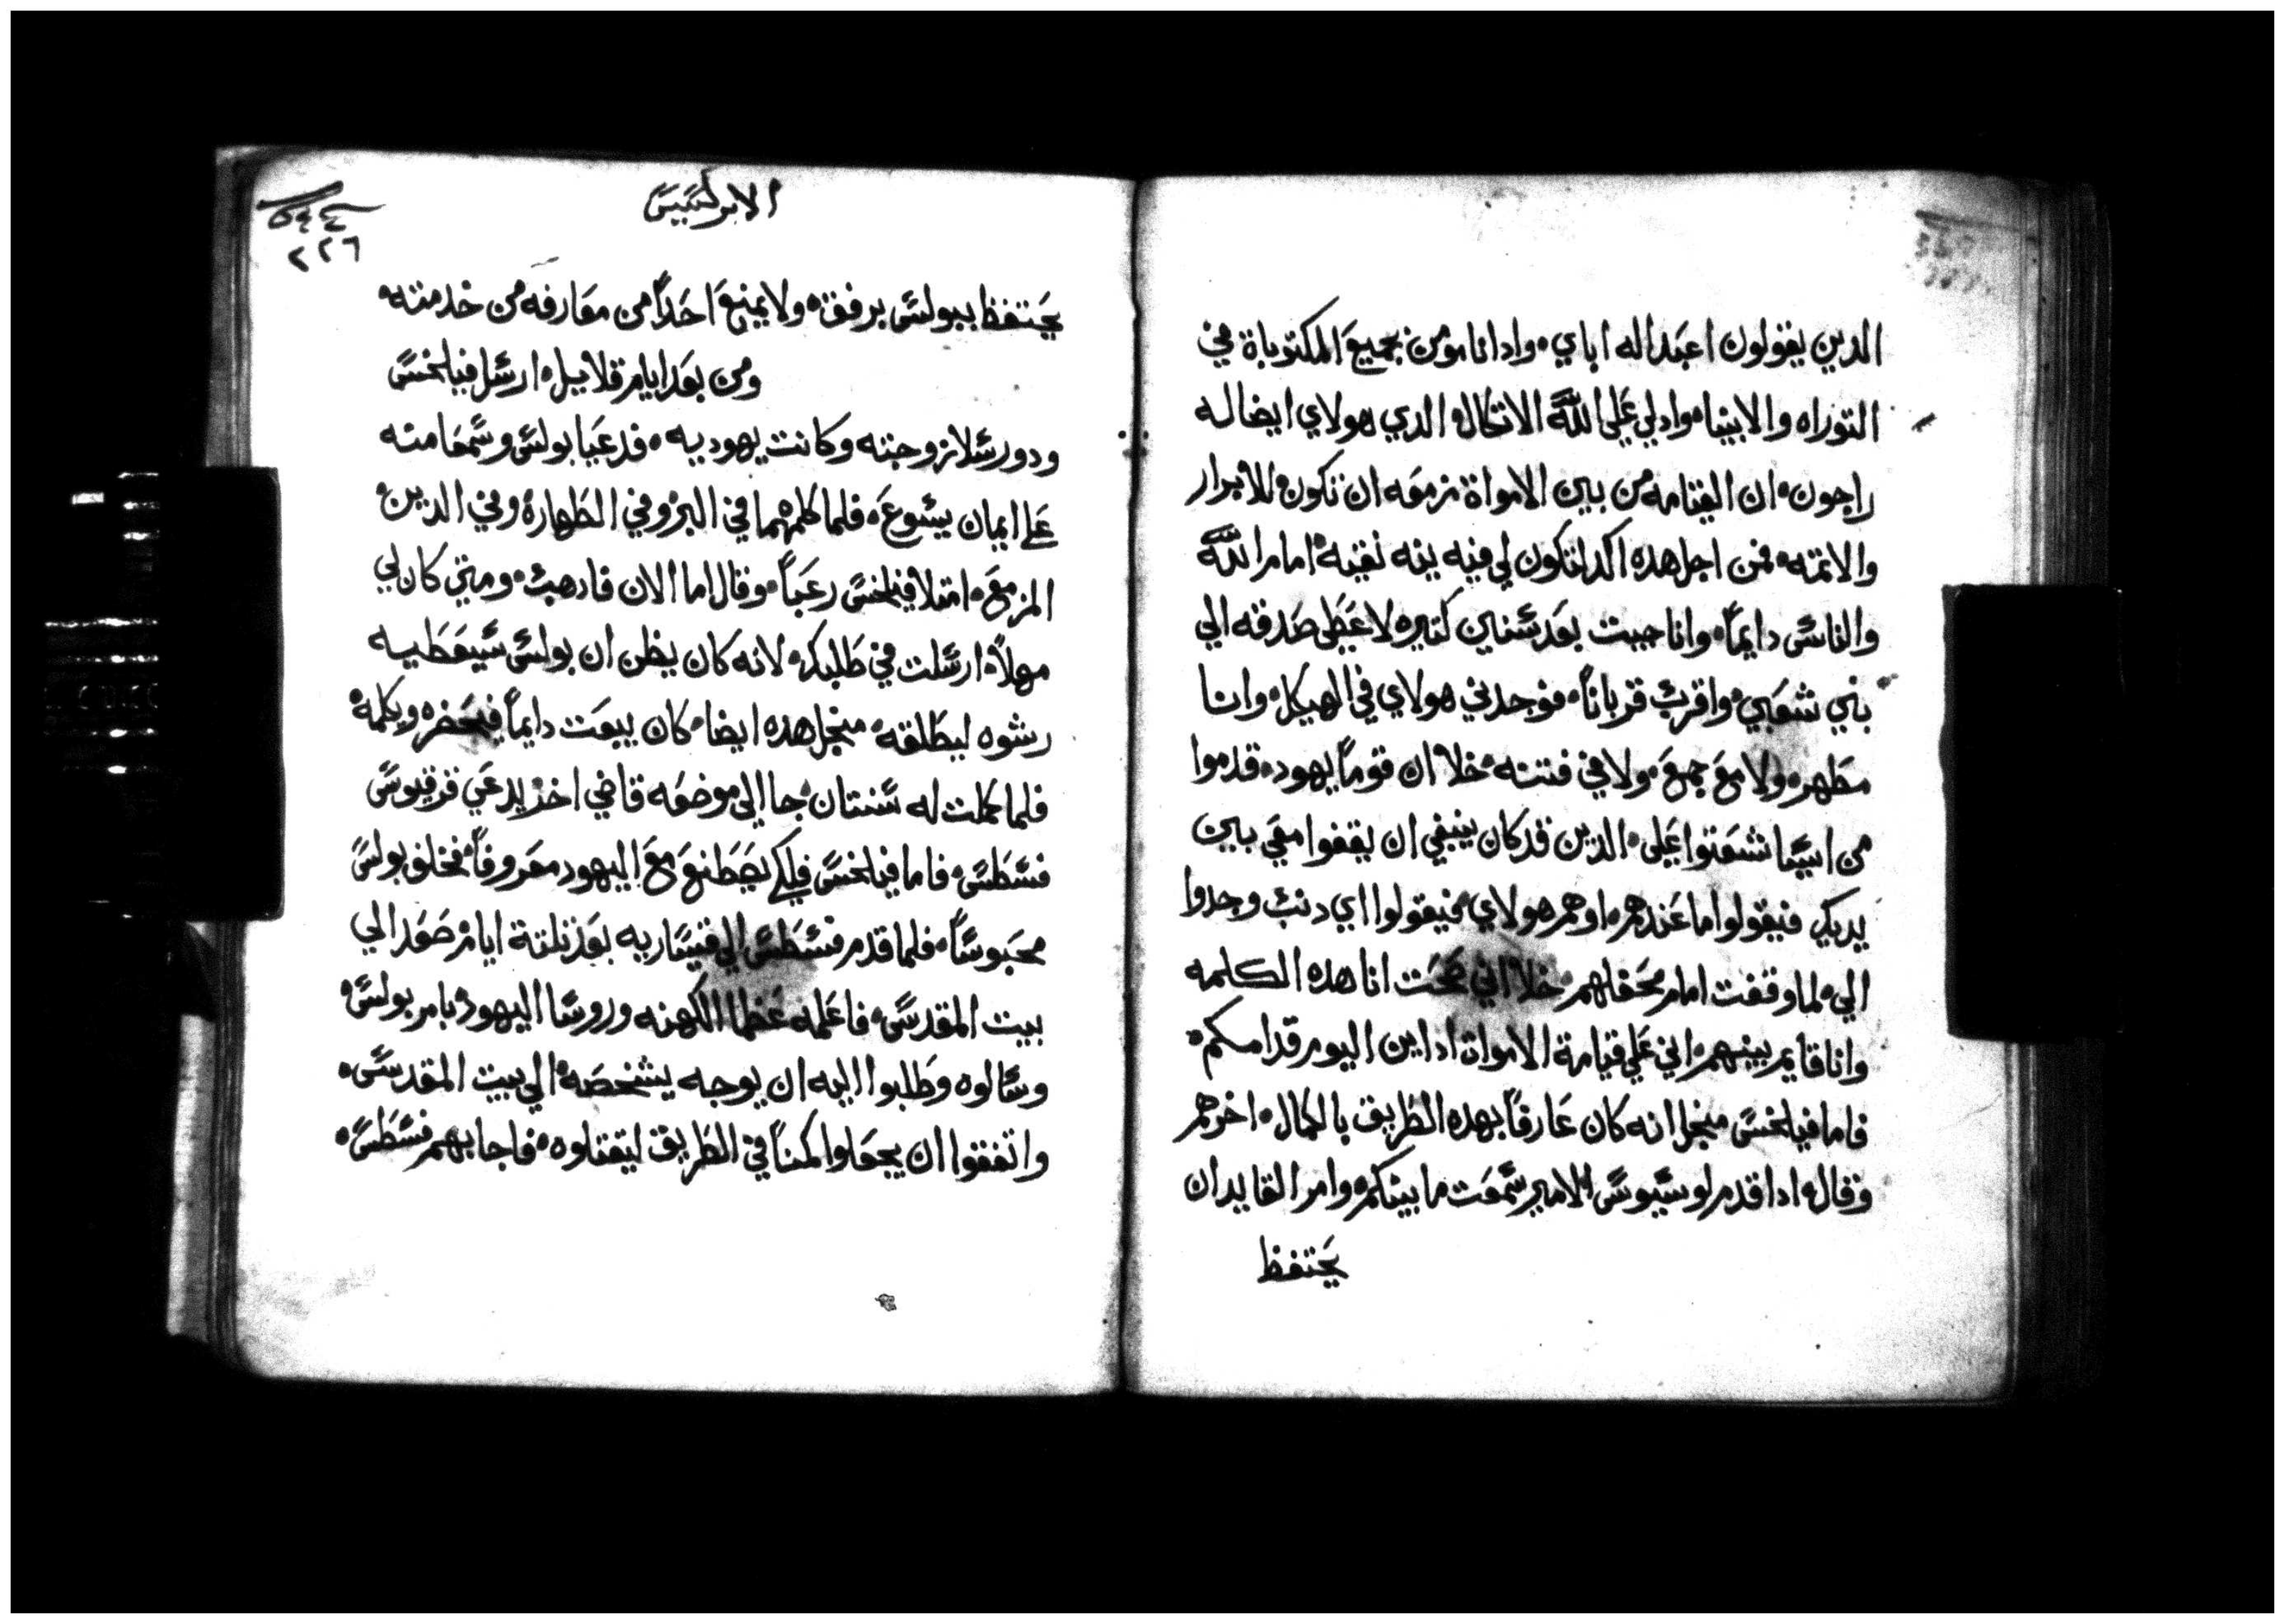 الدين يقولون اعبد اله اباي، وادانا مومن بجميع المكتوباة في
التوراه والانبيا، وادلي علي الله الاتكال، الدي هولاي ايضا له
راجون، ان القيامه من بين الامواة مزمعه ان تكون للابرار
والاتمه، فمن اجل هده اكد لتكون لي فيه ينه نقيه، امام الله
والناس دايماً، وانا جيت بعد سنين كتيره لاعطي صدقه الي
بني شعبي، واقرب قرباناً، فوجدني هولاي في الهيكل، وانا
مطهر، ولا مع جمع، ولا في فتنه، خلا ان قوماً يهود، قدموا
من اسيا شغتوا علي، الدين قد كان ينبغي ان يقفوا معي بين
يديك فيقولوا ما عندهم، او هم هولاي، فيقولوا اي دنب وجدوا
الي، لما وقفت امام محفلهم، خلا اني صحت انا هده الكلمه
وانا قايم بينهم، اني علي قيامة الاموات ادان اليوم قدامكم،
فاما فيلخس منجل انه كان عارفاً بهده الطريق بالكمال، اخرهم
وقال، ادا قدم لوسيوس الامير سمعت ما بينكم، وامر القايد ان
يحتفظ
الابركسيس
٢٢٦
يحتفظ ببولس برفق، ولا يمنع احداً من معارفه من خدمته،
ومن بعد ايام قلايل، ارسل فيلخس
ودورسلا زوجته وكانت يهوديه، فدعيا بولس وسمعا منه
علي ايمان يسوع، فلما كلمهما في البر وفي الطهارة وفي الدين
المزمع، امتلا فيلخس رعباً، وقال اما الان فادهب، ومتي كان لي
مهلاً، ارسلت في طلبك، لانه كان يظن ان بولس سيعطيه
رشوه ليطلقه، منجل هده ايضا، كان يبعت دايماً فيحضره ويكلمه،
فلما كملت له سنتان، جا الي موضعه قاضي اخر يدعي فرقيوس
فسطس، فاما فيلخس فلكي يصطنع مع اليهود معروفاً، فخلف بولس
محبوساً، فلما قدم فسطس الي قيساريه بعد تلتة ايام، صعد الي
بيت المقدس، فاعلمه عظما الكهنه وروسا اليهود، بامر بولس،
وسالوه وطلبوا اليه ان يوجه يشخصه، الي بيت المقدس،
واتفقوا ان يجعلوا كمناً في الطريق ليقتلوه، فاجابهم فسطس،